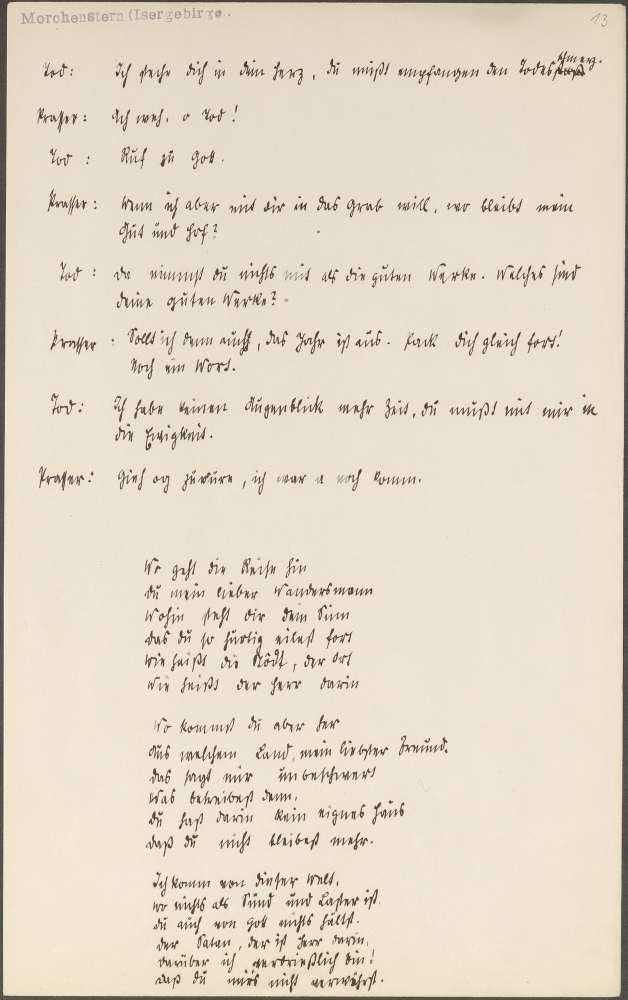 Morchenstern (Isergebirge.
13
Tod: Ich steche dich in dein Herz, du mußt empfangen den Todesschmerz.
Prasser: Ach weh, o Tod!
Tod: Ruf zu Gott.
Prasser: Wenn ich aber mit dir in das Grab will, wo bleibt mein
Gut und Hof?
Tod: Da nimmst du nichts mit als die guten Werke. Welches sind
deine guten Werke?
Prasser: Sollt ich denn auch, das Jahr ist aus. Pack dich gleich fort!
Noch ein Wort.
Tod: Ich habe keinen Augenblick mehr Zeit, du mußt mit mir in
die Ewigkeit.
Prasser: Gieh og zuvure, ich war a noch komm.
Wo geht die Reise hin
du mein lieber Wandersmann
Wohin steht dir dein Sinn
das du so hurtig eilest fort
wie heißt die Stådt, der Ort
Wie heißt der Herr darin
Wo kommst du aber her
Aus welchem Land, mein liebster Freund.
das sagt mir unbeschwert
Was betreibest denn,
du hast darin kein eignes Haus
daß du nicht bleibest mehr.
Ich komm von dieser Welt,
wo nichts als Sünd und Laster ist,
du auch von Gott nichts hältst.
der Satan, der ist Herr darin,
darüber ich verdrießlich bin!
daß du mirs nicht verwehrst.